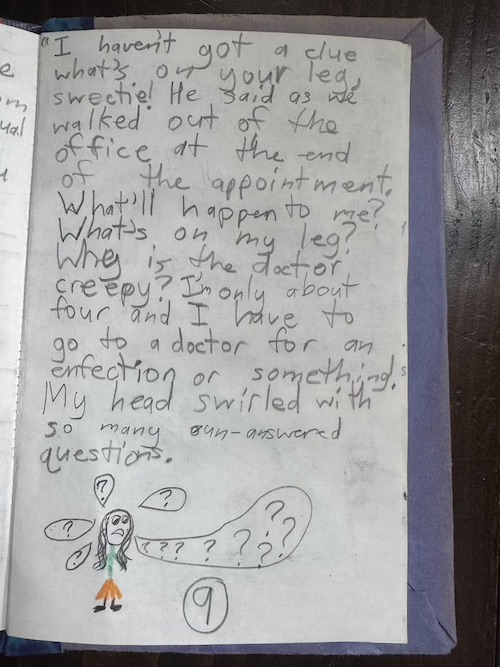 "I haven't got a clue
what's on your leg,
sweetie! He said as we
walked out of the
office at the end
of the appointment.
What'll happen to me?
What's on my leg?
Why is the doctor
creepy? I'm only about
four and I have to
go to a doctor for an
enfection or something.
My head swirled with
so many un-answered
questions.
?
?
?
?
? ? ? ? ? ? ? ? ?
9